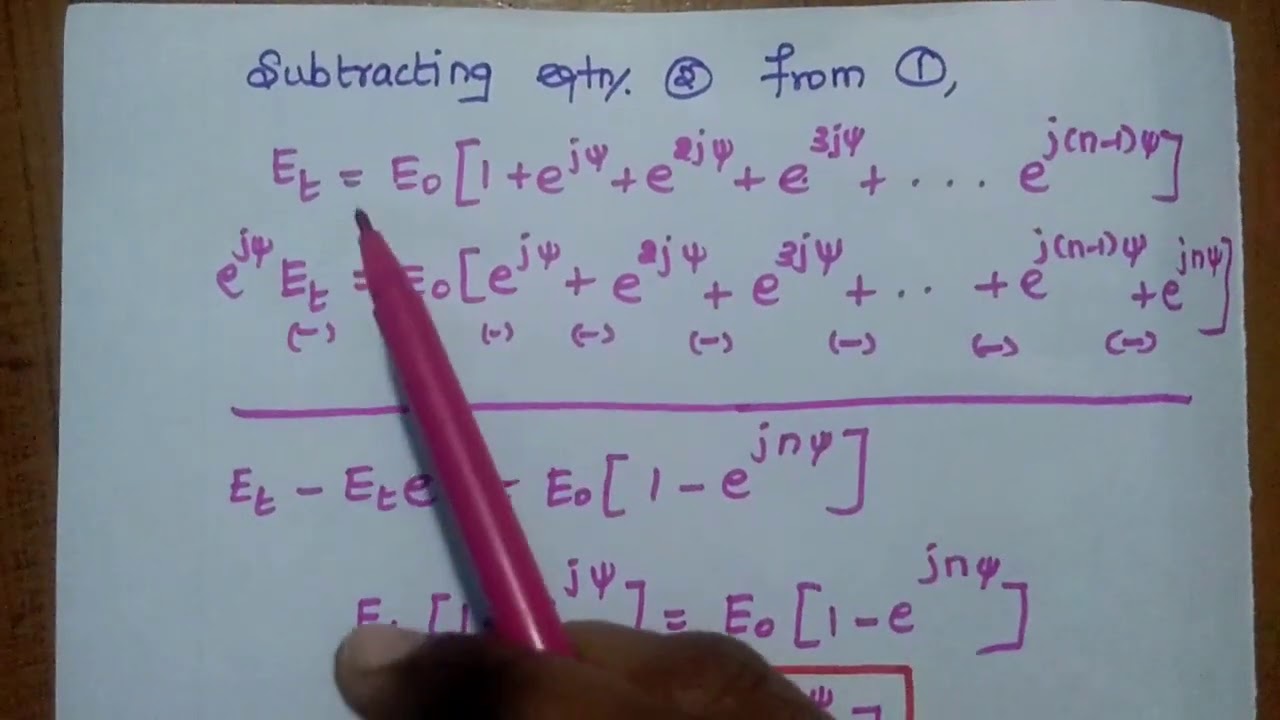 Subtracting eqtn. ② from ①,
E_t = E_0 [1 + e^{jψ} + e^{2jψ} + e^{3jψ} + .... e^{j(n-1)ψ}]
e^{jψ} E_t = E_0 [e^{jψ} + e^{2jψ} + e^{3jψ} + .. + e^{j(n-1)ψ} + e^{jnψ}]
(-) (-) (-) (-) (-) (-) (-)
E_t - E_t e = E_0 [1 - e^{jnψ}]
E [1 jψ] = E_0 [1 - e^{jnψ}]
ψ ]